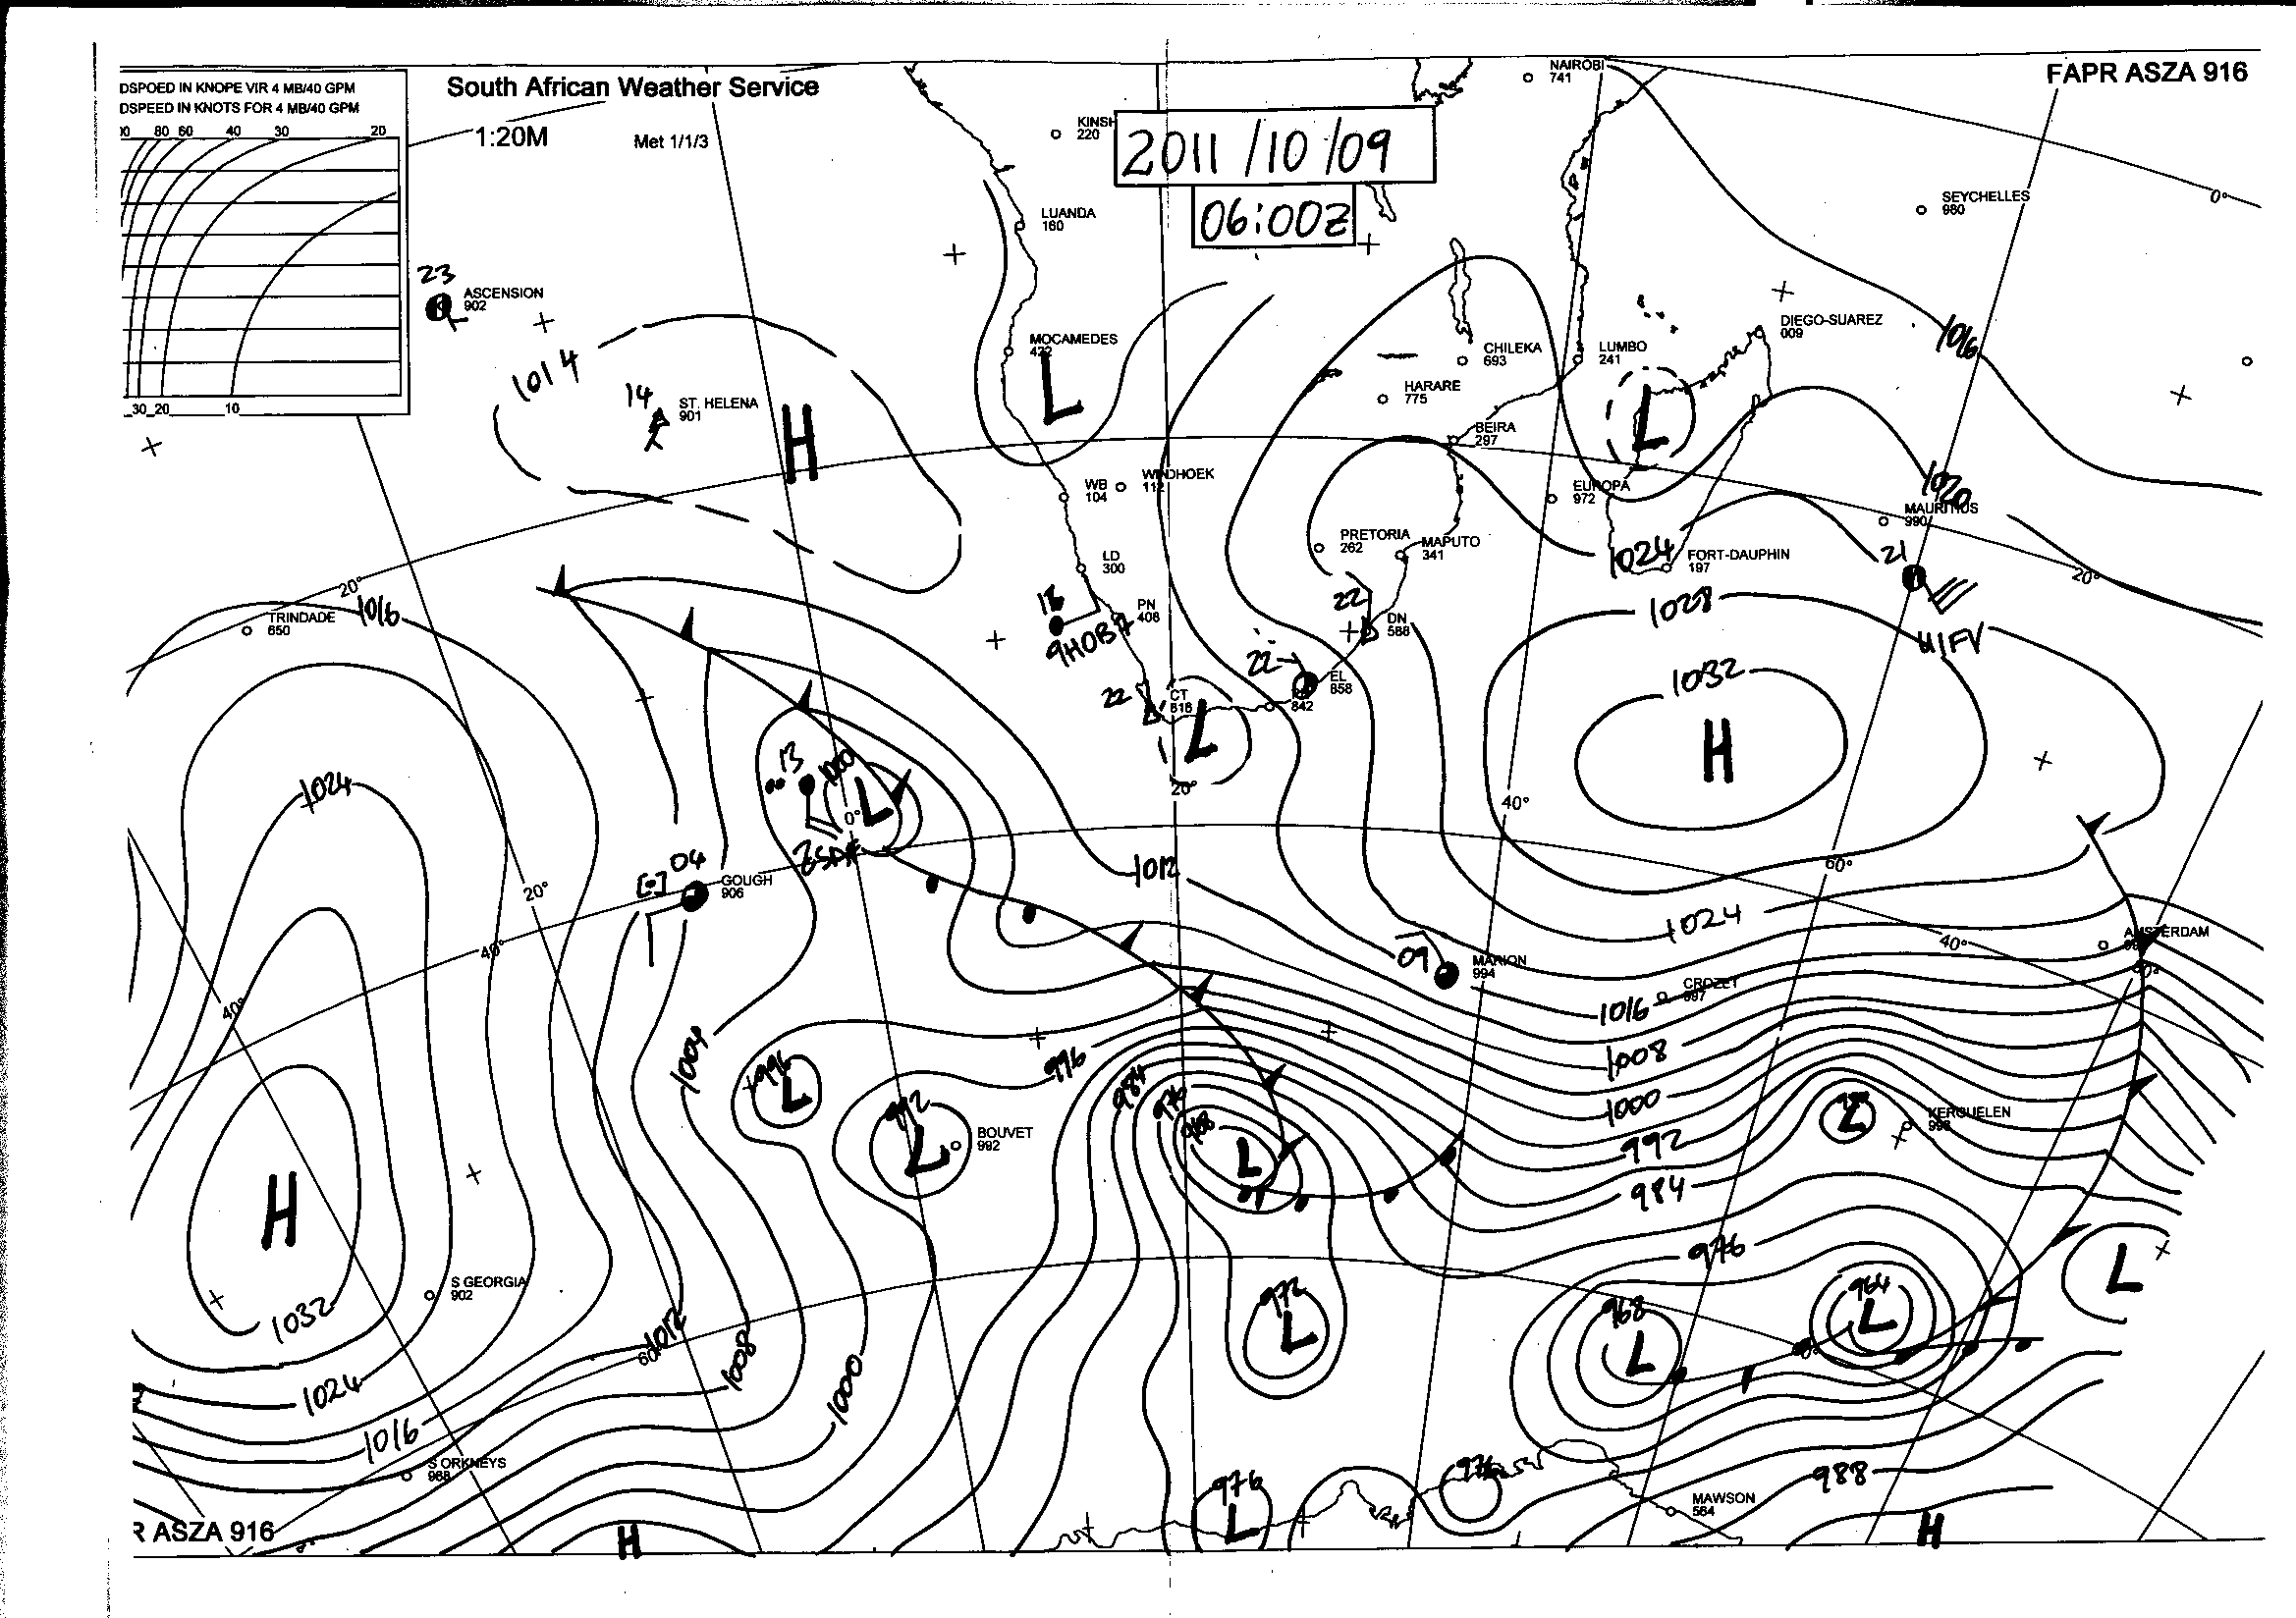 DSPOED IN KNOPE VIR 4 MB/40 GPM
DSPEED IN KNOTS FOR 4 MB/40 GPM
80 60 40 30 20
30 20 10
South African Weather Service
1:20M
Met 1/1/3
FAPR ASZA 916
2011/10/09
06:00Z
NAIROBI
741
KINSH
220
LUANDA
160
SEYCHELLES
980
0°
23
ASCENSION
902
1014
14
ST. HELENA
901
H
MOCAMEDES
422
L
CHILEKA
693
LUMBO
241
DIEGO-SUAREZ
009
1016
HARARE
775
L
BEIRA
297
WB
104
WINDHOEK
112
EUROPA
972
1020
MAURITIUS
990
PRETORIA
262
MAPUTO
341
1024
FORT-DAUPHIN
197
21
20°
LD
300
20°
TRINDADE
650
1016
PN
406
9HOB7
22
DN
588
1028
22
EL
858
842
22
CT
816
L
20°
1032
H
40°
1024
13
1000
L
0°
04
GOUGH
906
20°
40°
1012
60°
1024
40°
AMSTERDAM
09
MARION
994
CROZET
997
1016
40°
1008
1004
996
L
996
984
976
968
L
1000
992
984
L
KERGUELEN
998
992
L
BOUVET
992
H
976
972
L
968
L
964
L
L
S GEORGIA
902
1032
1012
60°
1008
1000
1024
1016
S ORKNEYS
988
976
L
976
988
MAWSON
564
H
H
R ASZA 916